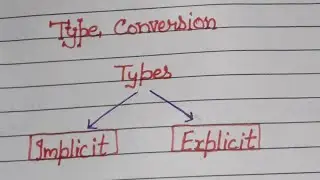 Type Conversion
Types
Implicit Explicit